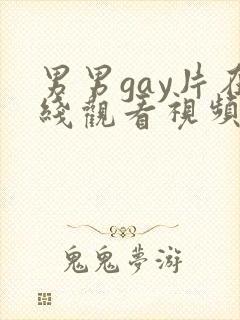 男男gay片在
綫觀看視頻
鬼鬼夢游